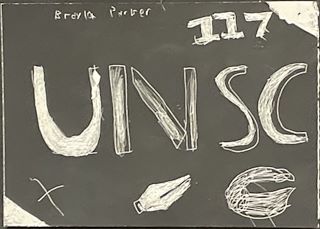 Brayla Parker
117
UNSC
X